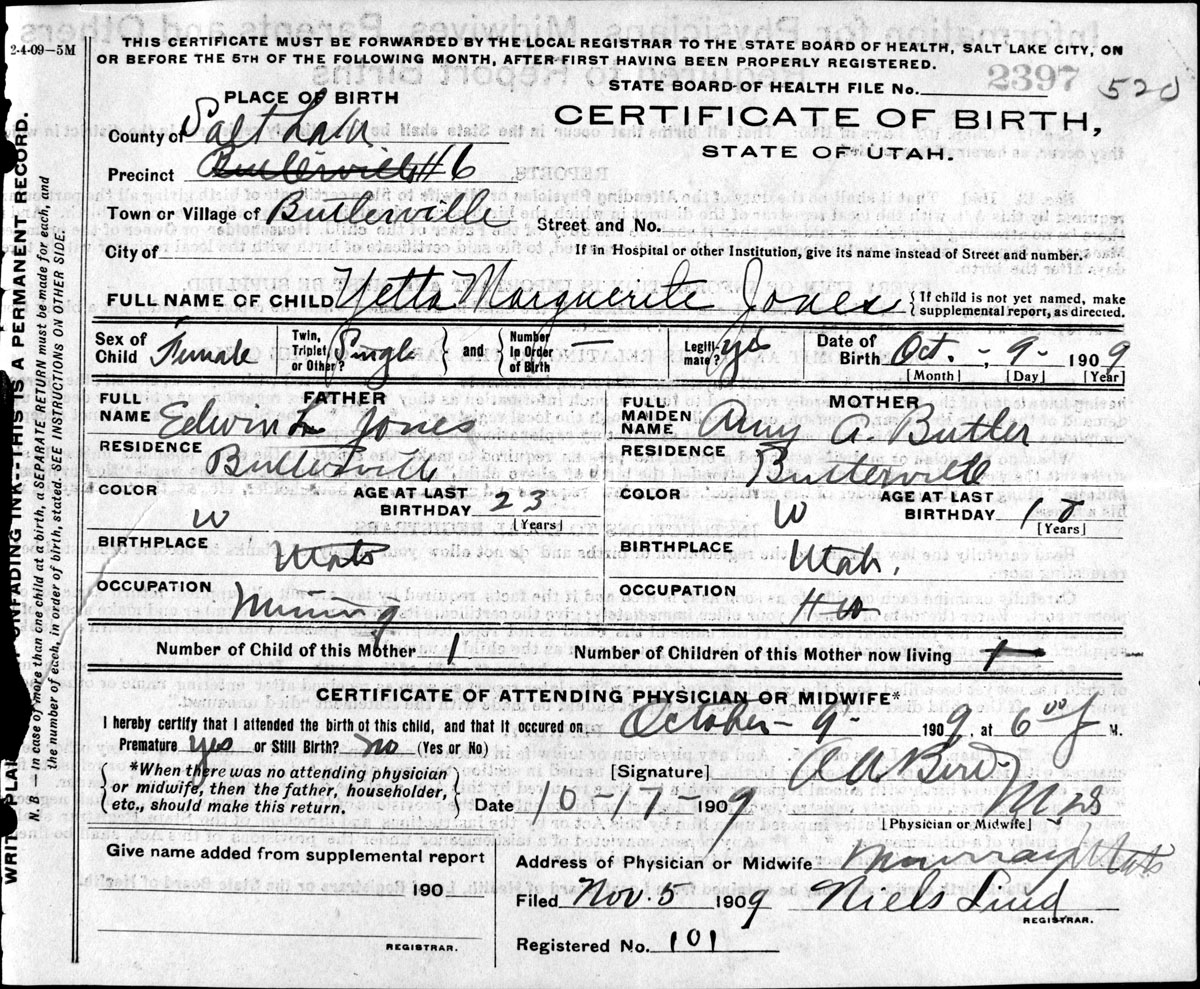 2-4-09—5M
THIS CERTIFICATE MUST BE FORWARDED BY THE LOCAL REGISTRAR TO THE STATE BOARD OF HEALTH, SALT LAKE CITY, ON
OR BEFORE THE 5TH OF THE FOLLOWING MONTH, AFTER FIRST HAVING BEEN PROPERLY REGISTERED.
2397
520
STATE BOARD OF HEALTH FILE No.
PLACE OF BIRTH
CERTIFICATE OF BIRTH,
STATE OF UTAH.
County of Salt Lake
Precinct Butlerville #6
Town or Village of Butlerville Street and No.
City of If in Hospital or other Institution, give its name instead of Street and number.
FULL NAME OF CHILD Yetta Marguerite Jones { If child is not yet named, make supplemental report, as directed.
Sex of Child Female Twin, Triplet, or Other? Single and Number in Order of Birth — Legitimate? yes Date of Birth Oct. - 9 - 1909
[Month] [Day] [Year]
FATHER
FULL NAME Edwin L Jones
RESIDENCE Butlerville
COLOR W AGE AT LAST BIRTHDAY 23
[Years]
BIRTHPLACE Utah
OCCUPATION Mining
MOTHER
FULL MAIDEN NAME Amy A. Butler
RESIDENCE Butlerville
COLOR W AGE AT LAST BIRTHDAY 18
[Years]
BIRTHPLACE Utah.
OCCUPATION HW
Number of Child of this Mother 1 Number of Children of this Mother now living 1
CERTIFICATE OF ATTENDING PHYSICIAN OR MIDWIFE*
I hereby certify that I attended the birth of this child, and that it occured on October - 9 - 1909, at 6 00 M.
Premature yes or Still Birth? no (Yes or No)
*When there was no attending physician
or midwife, then the father, householder,
etc., should make this return.
[Signature]
Date 10-17-1909
[Physician or Midwife]
Give name added from supplemental report
190
REGISTRAR.
Address of Physician or Midwife Murray Utah
Filed Nov. 5 1909 Niels Lind
REGISTRAR.
Registered No. 101
UNFADING INK---THIS IS A PERMANENT RECORD.
N. B.—In case of more than one child at a birth, a SEPARATE RETURN must be made for each, and
the number of each, in order of birth, stated. SEE INSTRUCTIONS ON OTHER SIDE.